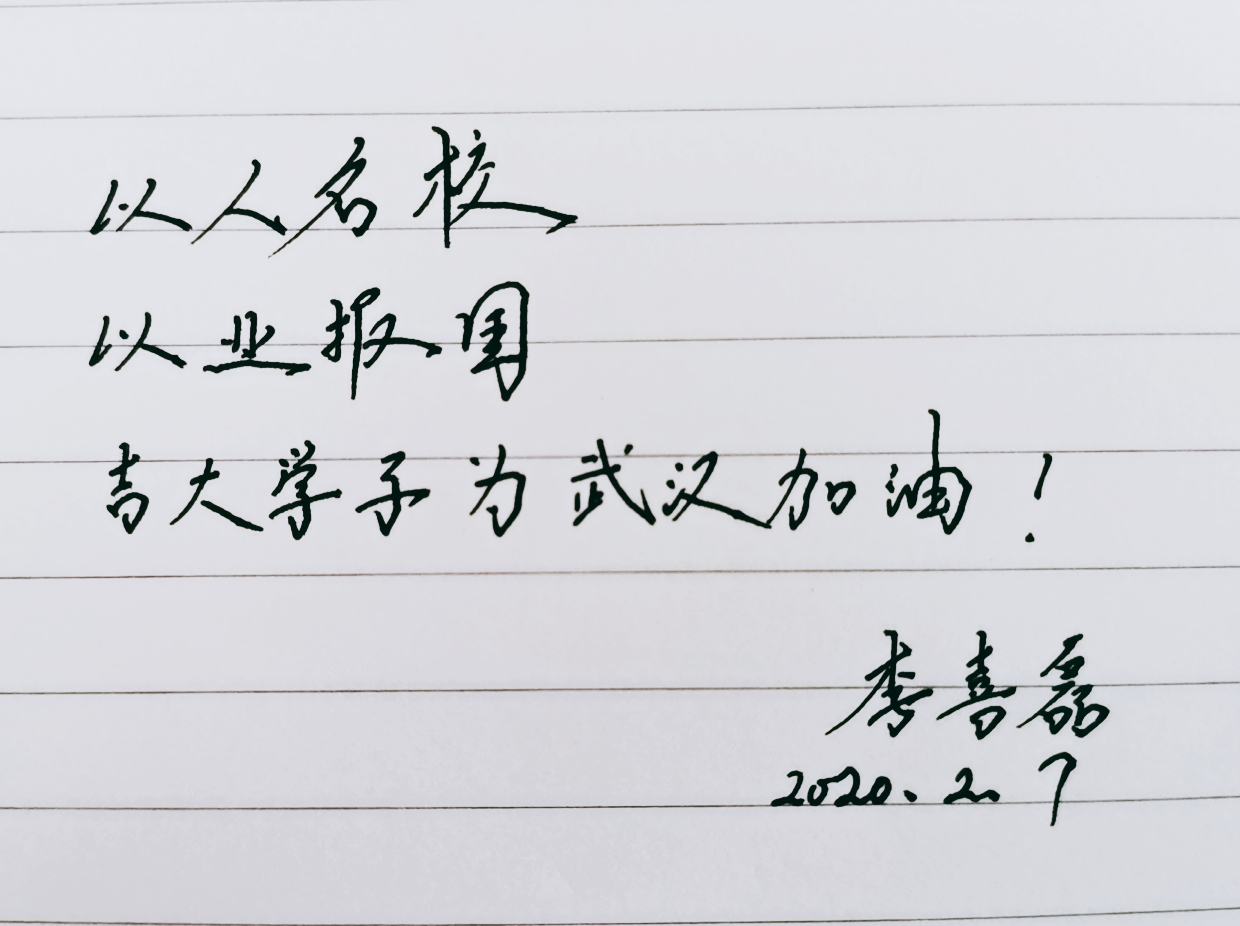 以人名校
以业报国
吉大学子为武汉加油！
李喜磊
2020.2.7